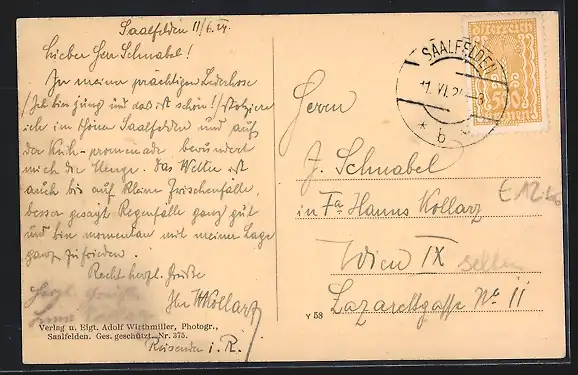 Saalfelden 11/6.24.
Lieber Herr Schnabel!
In meiner prächtigen Lederhose
/Ich bin jung und das ist schön!/ stolziere
ich im schönen Saalfelden und auf
der Kuh-promenade bewundert
mich die Menge. Das Wetter ist
auch bis auf kleine Zwischenfälle,
besser gesagt Regenfälle ganz gut
und bin momentan mit meiner Lage
ganz zufrieden.
Recht herzl. Grüße
Ihr Kollarz
Herzl. Grüße
Reisender i. R.
Verlag u. Eigt. Adolf Wirthmiller, Photogr.,
Saalfelden. Ges. geschützt. Nr. 375.
Y 58
SAALFELDEN
11. VI. 24
* b
Österreich
500
Kronen
Herrn
J. Schnabel
in Fa Hanns Kollarz
Wien IX
Lazarettgasse No 11
selten